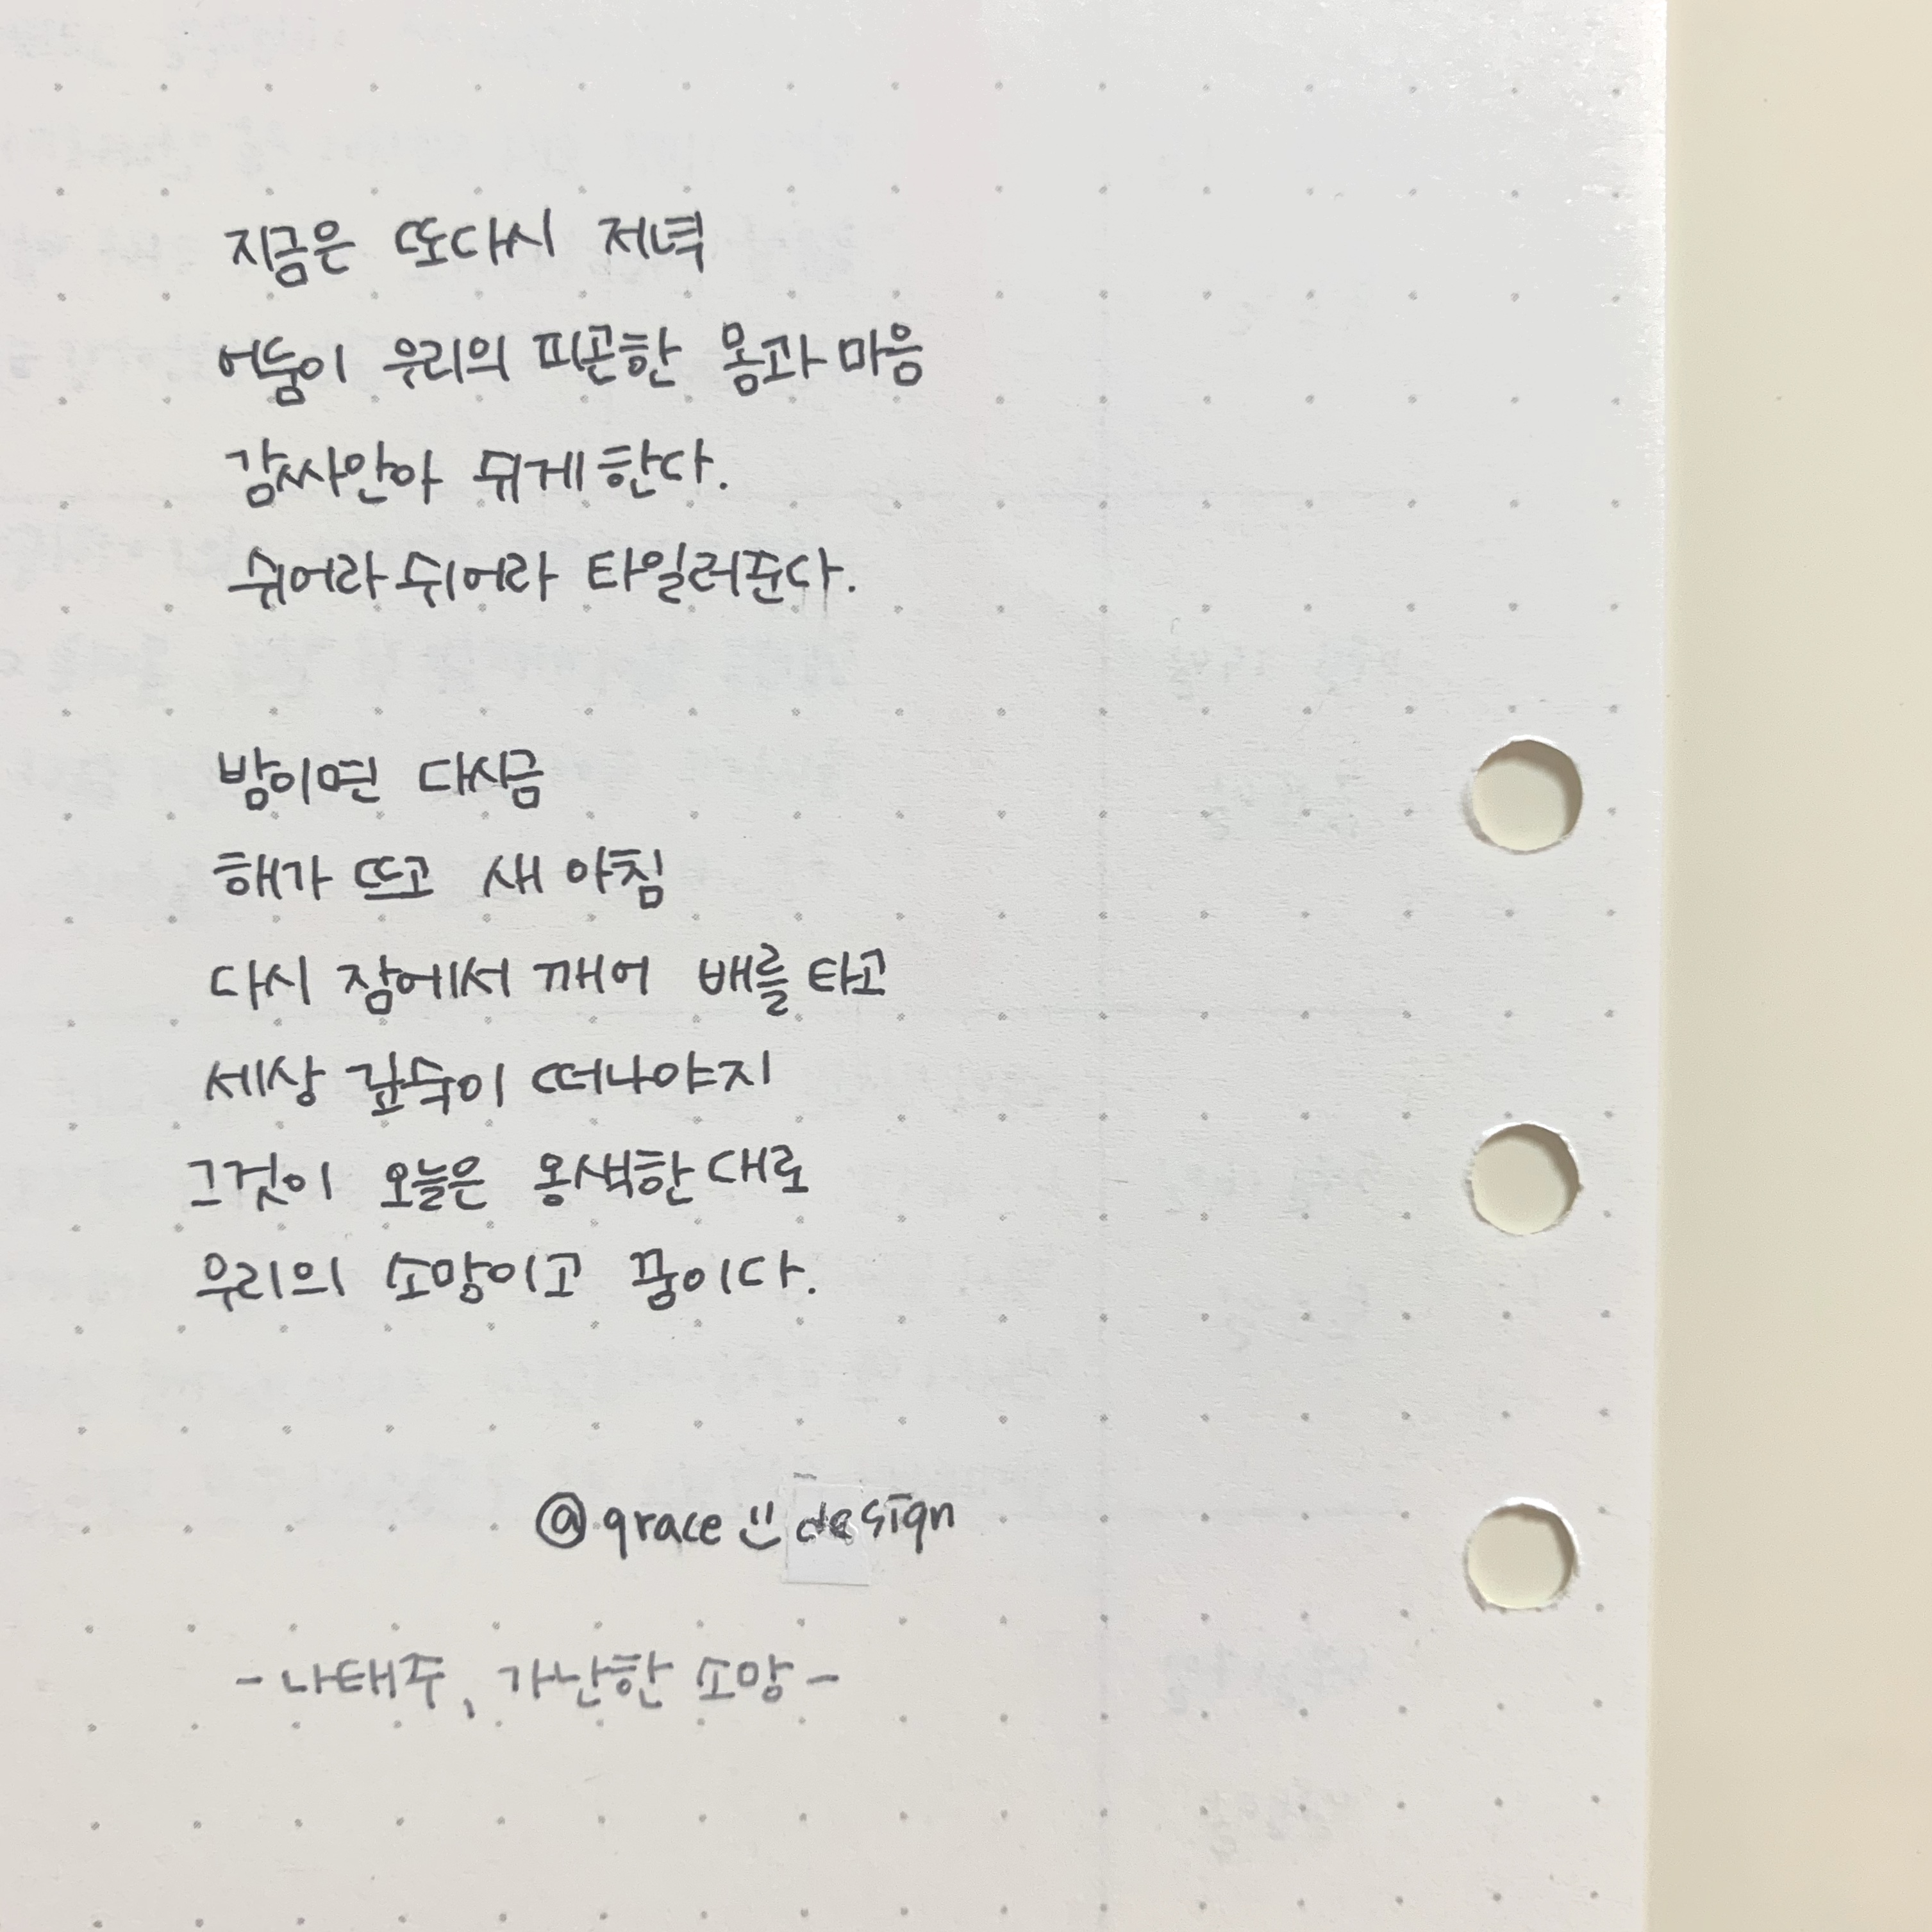 지금은 또다시 저녁
어둠이 우리의 피곤한 몸과 마음
감싸안아 쉬게 한다.
쉬어라 쉬어라 타일러준다.
밤이면 다시금
해가 뜨고 새 아침
다시 잠에서 깨어 배를 타고
세상 깊숙이 떠나야지
그것이 오늘은 옹색한대로
우리의 소망이고 꿈이다.
@grace :) design
- 나태주, 가난한 소망 -